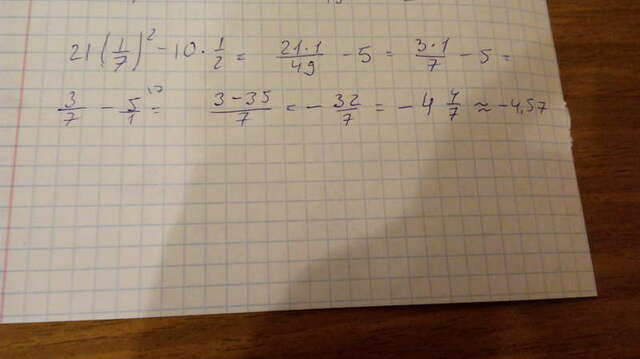 21(1/7)² - 10 · 1/2 = (21·1)/49 - 5 = (3·1)/7 - 5 =
3/7 - 5/1 = (3-35)/7 = - 32/7 = - 4 4/7 ≈ -4,57